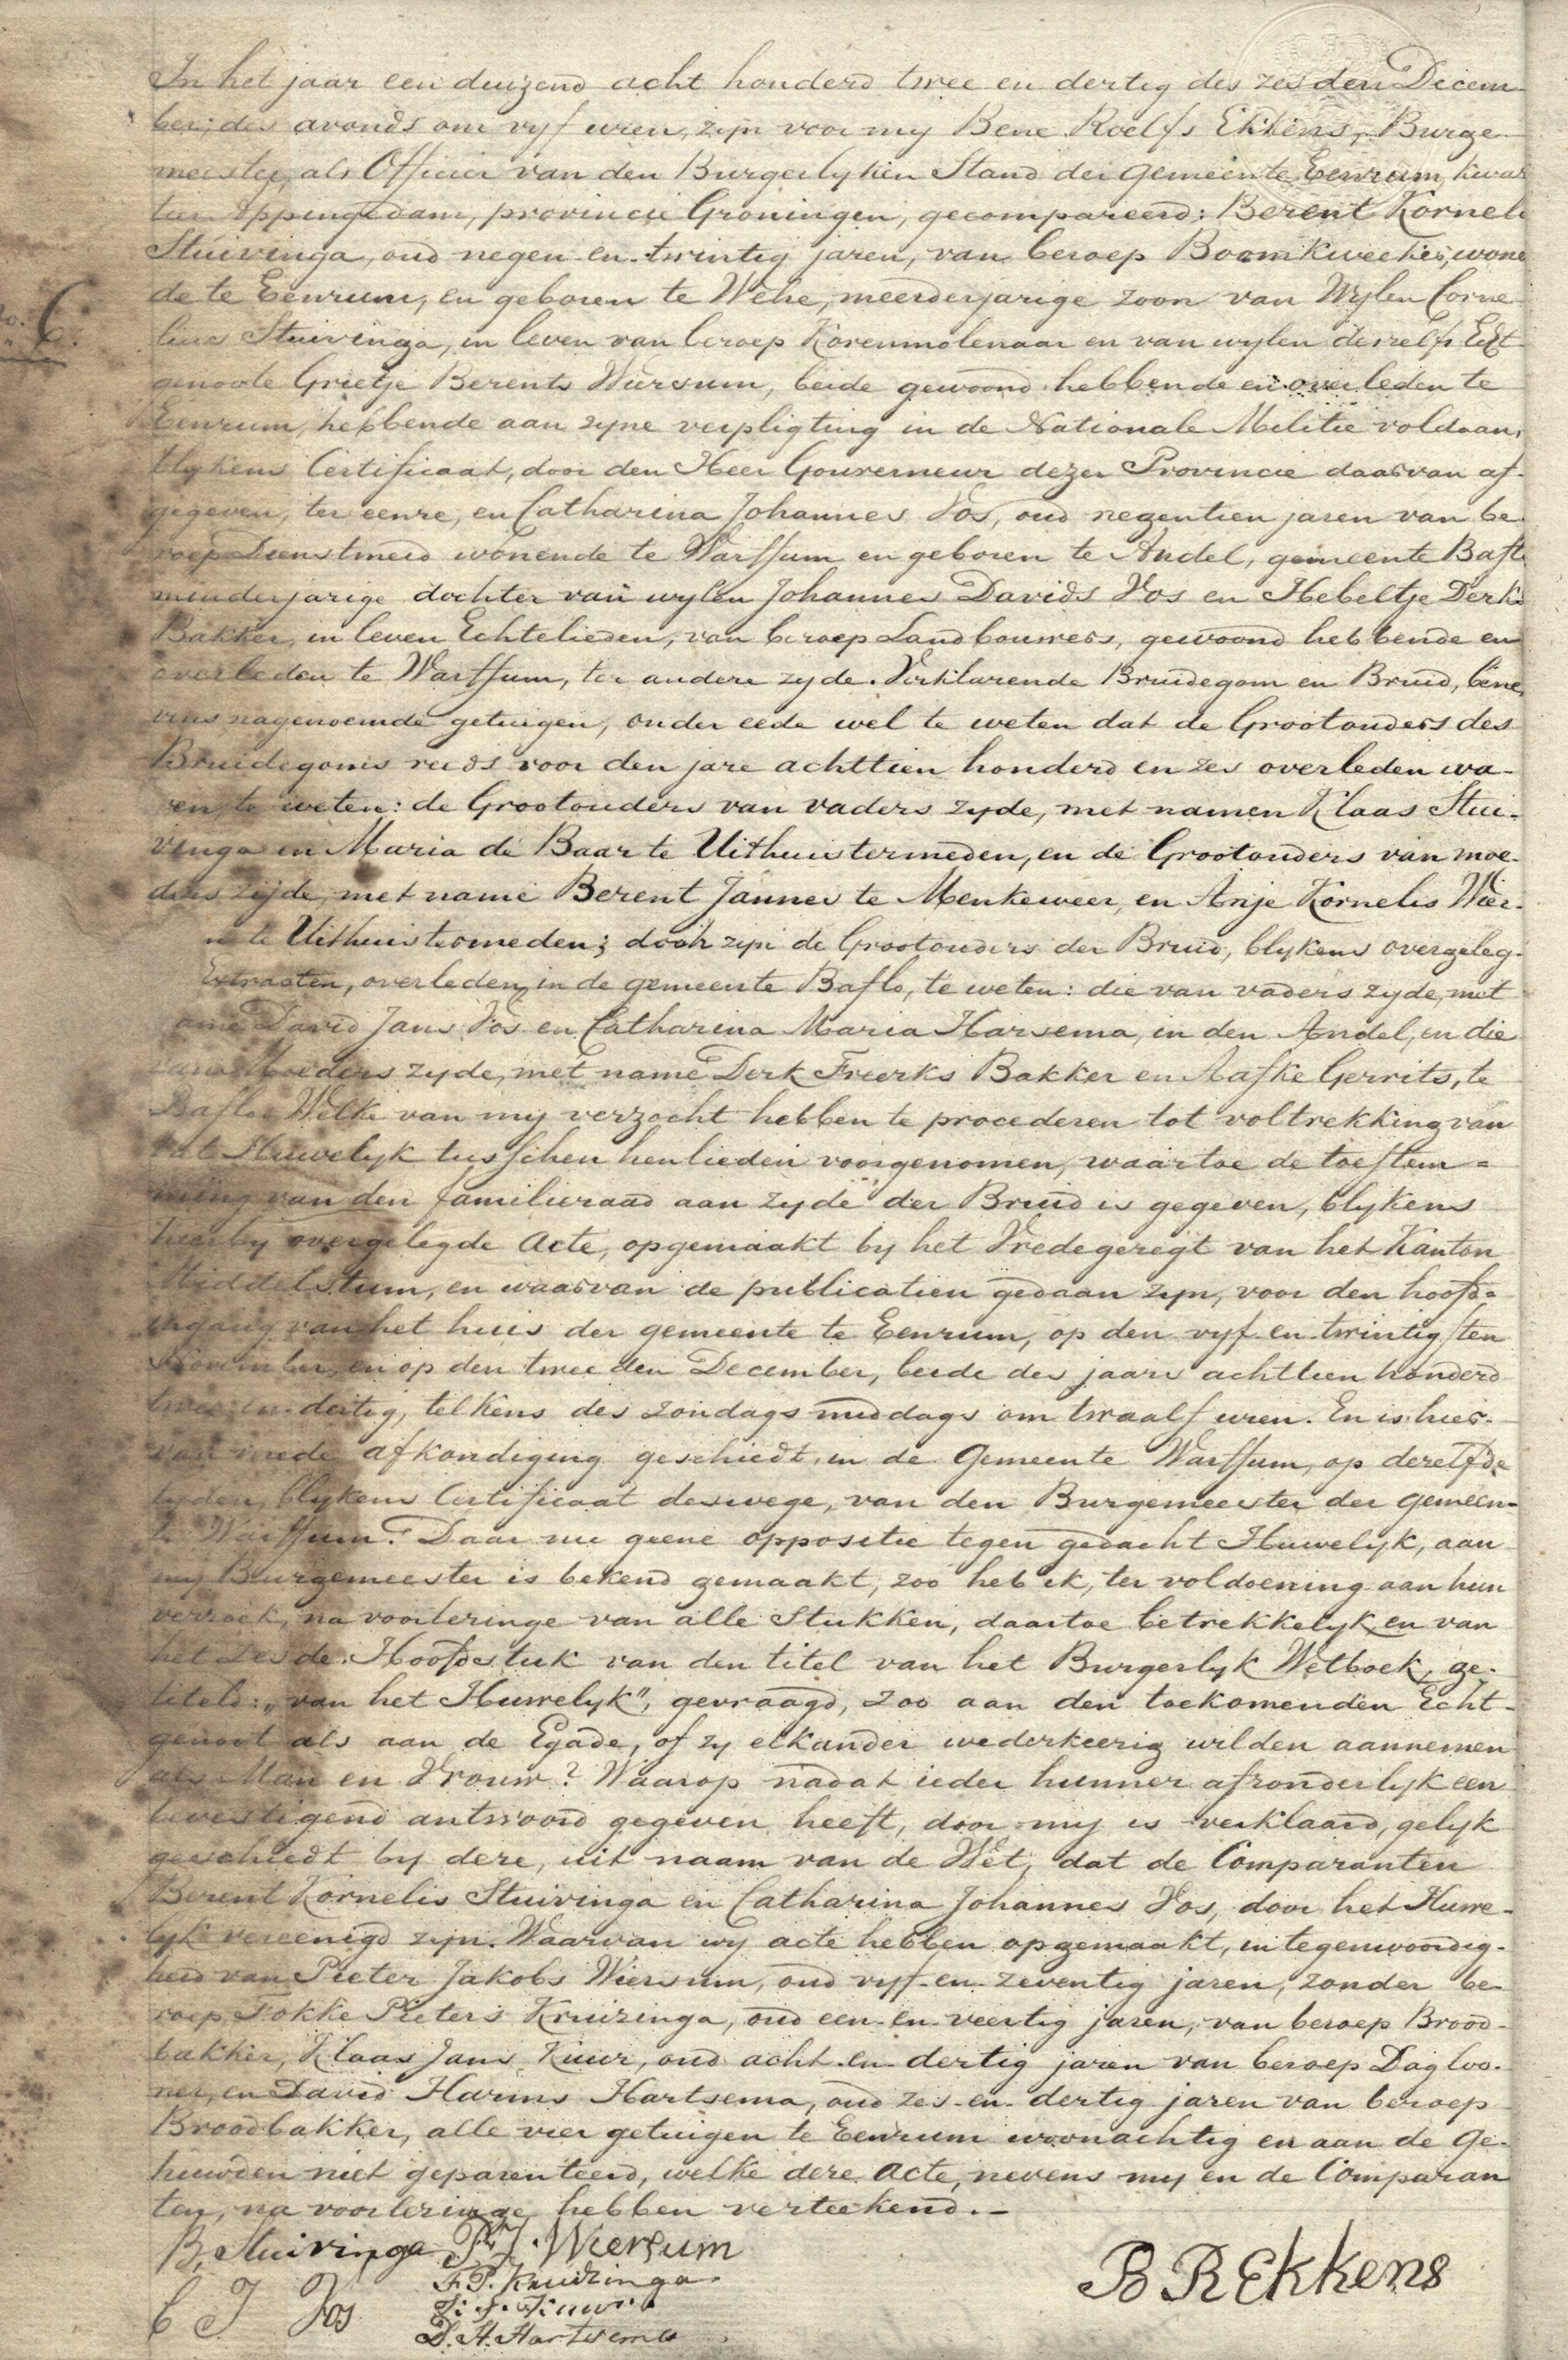 In het jaar een duizend acht honderd twee en dertig des zesden Decem-
ber, des avonds om vyf uren, zyn voor my Bene Roelfs Ekkens, Burge-
meester, als Officier van den Burgerlyken Stand der Gemeente Eenrum, kwar
tier Appingedam, provincie Groningen, gecompareerd: Berent Kornel
Stuivinga, oud negen-en-twintig jaren, van beroep Boomkweeker, wone
de te Eenrum, en geboren te Wehe, meerderjarige zoon van Wylen Corne-
No. 6.
lius Stuivinga, in leven van beroep Korenmolenaar en van wylen deszelfs Echt
genoote Grietje Berents Wiersum, beide gewoond hebbende en overleden te
Eenrum, hebbende aan zyne verpligting in de Nationale Militie voldaan,
blykens Certificaat, door den Heer Gouverneur dezer Provincie daarvan af-
gegeven, ter eenre, en Catharina Johannes Vos, oud negentien jaren van be-
roep Dienstmeid wonende te Warffum en geboren te Andel, gemeente Baflo
minderjarige dochter van wylen Johannes Davids Vos en Hebeltje Derks
Bakker, in leven Echtelieden, van beroep Landbouwers, gewoond hebbende en
overleden te Warffum, ter andere zyde. Verklarende Bruidegom en Bruid, bene
vens nagenoemde getuigen, onder eede wel te weten dat de Grootouders des
Bruidegoms reeds voor den jare achttien honderd en zes overleden wa-
ren, te weten: de Grootouders van vaders zyde, met namen Klaas Stui-
vinga en Maria de Baar te Uithuistermeden, en de Grootouders van moe-
ders zijde, met name Berent Jannes te Menkeweer, en Anje Kornelis Wier-
te Uithuistermeden; doch zyn de Grootouders der Bruid, blykens overgeleg-
Extracten, overleden in de gemeente Baflo, te weten: die van vaders zyde, met
name David Jans Vos en Catharina Maria Harsema, in den Andel, en die
van Moeders zyde, met name Derk Freerks Bakker en Aafke Gerrits, te
Baflo. Welke van mij verzocht hebben te procederen tot voltrekking van
het Huwelyk tusschen henlieden voorgenomen, waartoe de toestem-
ming van den familieraad aan zyde der Bruid is gegeven, blykens
hierby overgelegde Acte, opgemaakt by het Vredegeregt van het Kanton
Middelstum, en waarvan de publicatien gedaan zyn, voor den hoofd-
ingang van het huis der gemeente te Eenrum, op den vyf-en-twintigsten
November, en op den tweeden December, beide des jaars achttien honderd
twee-en-dertig, telkens des Zondags middags om twaalf uren. En is hier-
van mede afkondiging geschiedt, in de Gemeente Warffum, op dezelfde
tyden, blykens Certificaat deswege, van den Burgemeester der Gemeen-
te Warffum. Daar nu geene oppositie tegen gedacht Huwelyk, aan
my Burgemeester is bekend gemaakt, zoo heb ik, ter voldoening aan hun
verzoek, na voorlezinge van alle Stukken, daartoe betrekkelyk, en van
het zesde Hoofdstuk van den titel van het Burgerlyk Wetboek, ge-
titeld: „van het Huwelyk", gevraagd, zoo aan den toekomenden Echt-
genoot als aan de Egade, of zy elkander wederkeerig wilden aannemen
als Man en Vrouw? Waarop nadat ieder hunner afzonderlyk een
bevestigend antwoord gegeven heeft, door my is verklaard, gelyk
geschiedt by deze, uit naam van de Wet, dat de Comparanten
Berent Kornelis Stuivinga en Catharina Johannes Vos, door het Huwe-
lyk vereenigd zyn. Waarvan wy acte hebben opgemaakt, in tegenwoordig-
heid van Pieter Jakobs Wiersum, oud vyf-en-zeventig jaren, zonder be-
roep, Fokke Pieters Kruizinga, oud een-en-veertig jaren, van beroep Brood-
bakker, Klaas Jans Kuur, oud acht-en-dertig jaren van beroep Dagloo-
ner, en David Harms Hartsema, oud zes-en-dertig jaren van beroep
Broodbakker, alle vier getuigen te Eenrum woonachtig en aan de Ge-
huwden niet geparenteerd, welke deze Acte, nevens my en de Comparan
ten, na voorlezinge hebben verteekend.-
B. Stuivinga P. J. Wiersum
F. P. Kruizinga
B R Ekkens
C J Vos
D. H. Hartsema